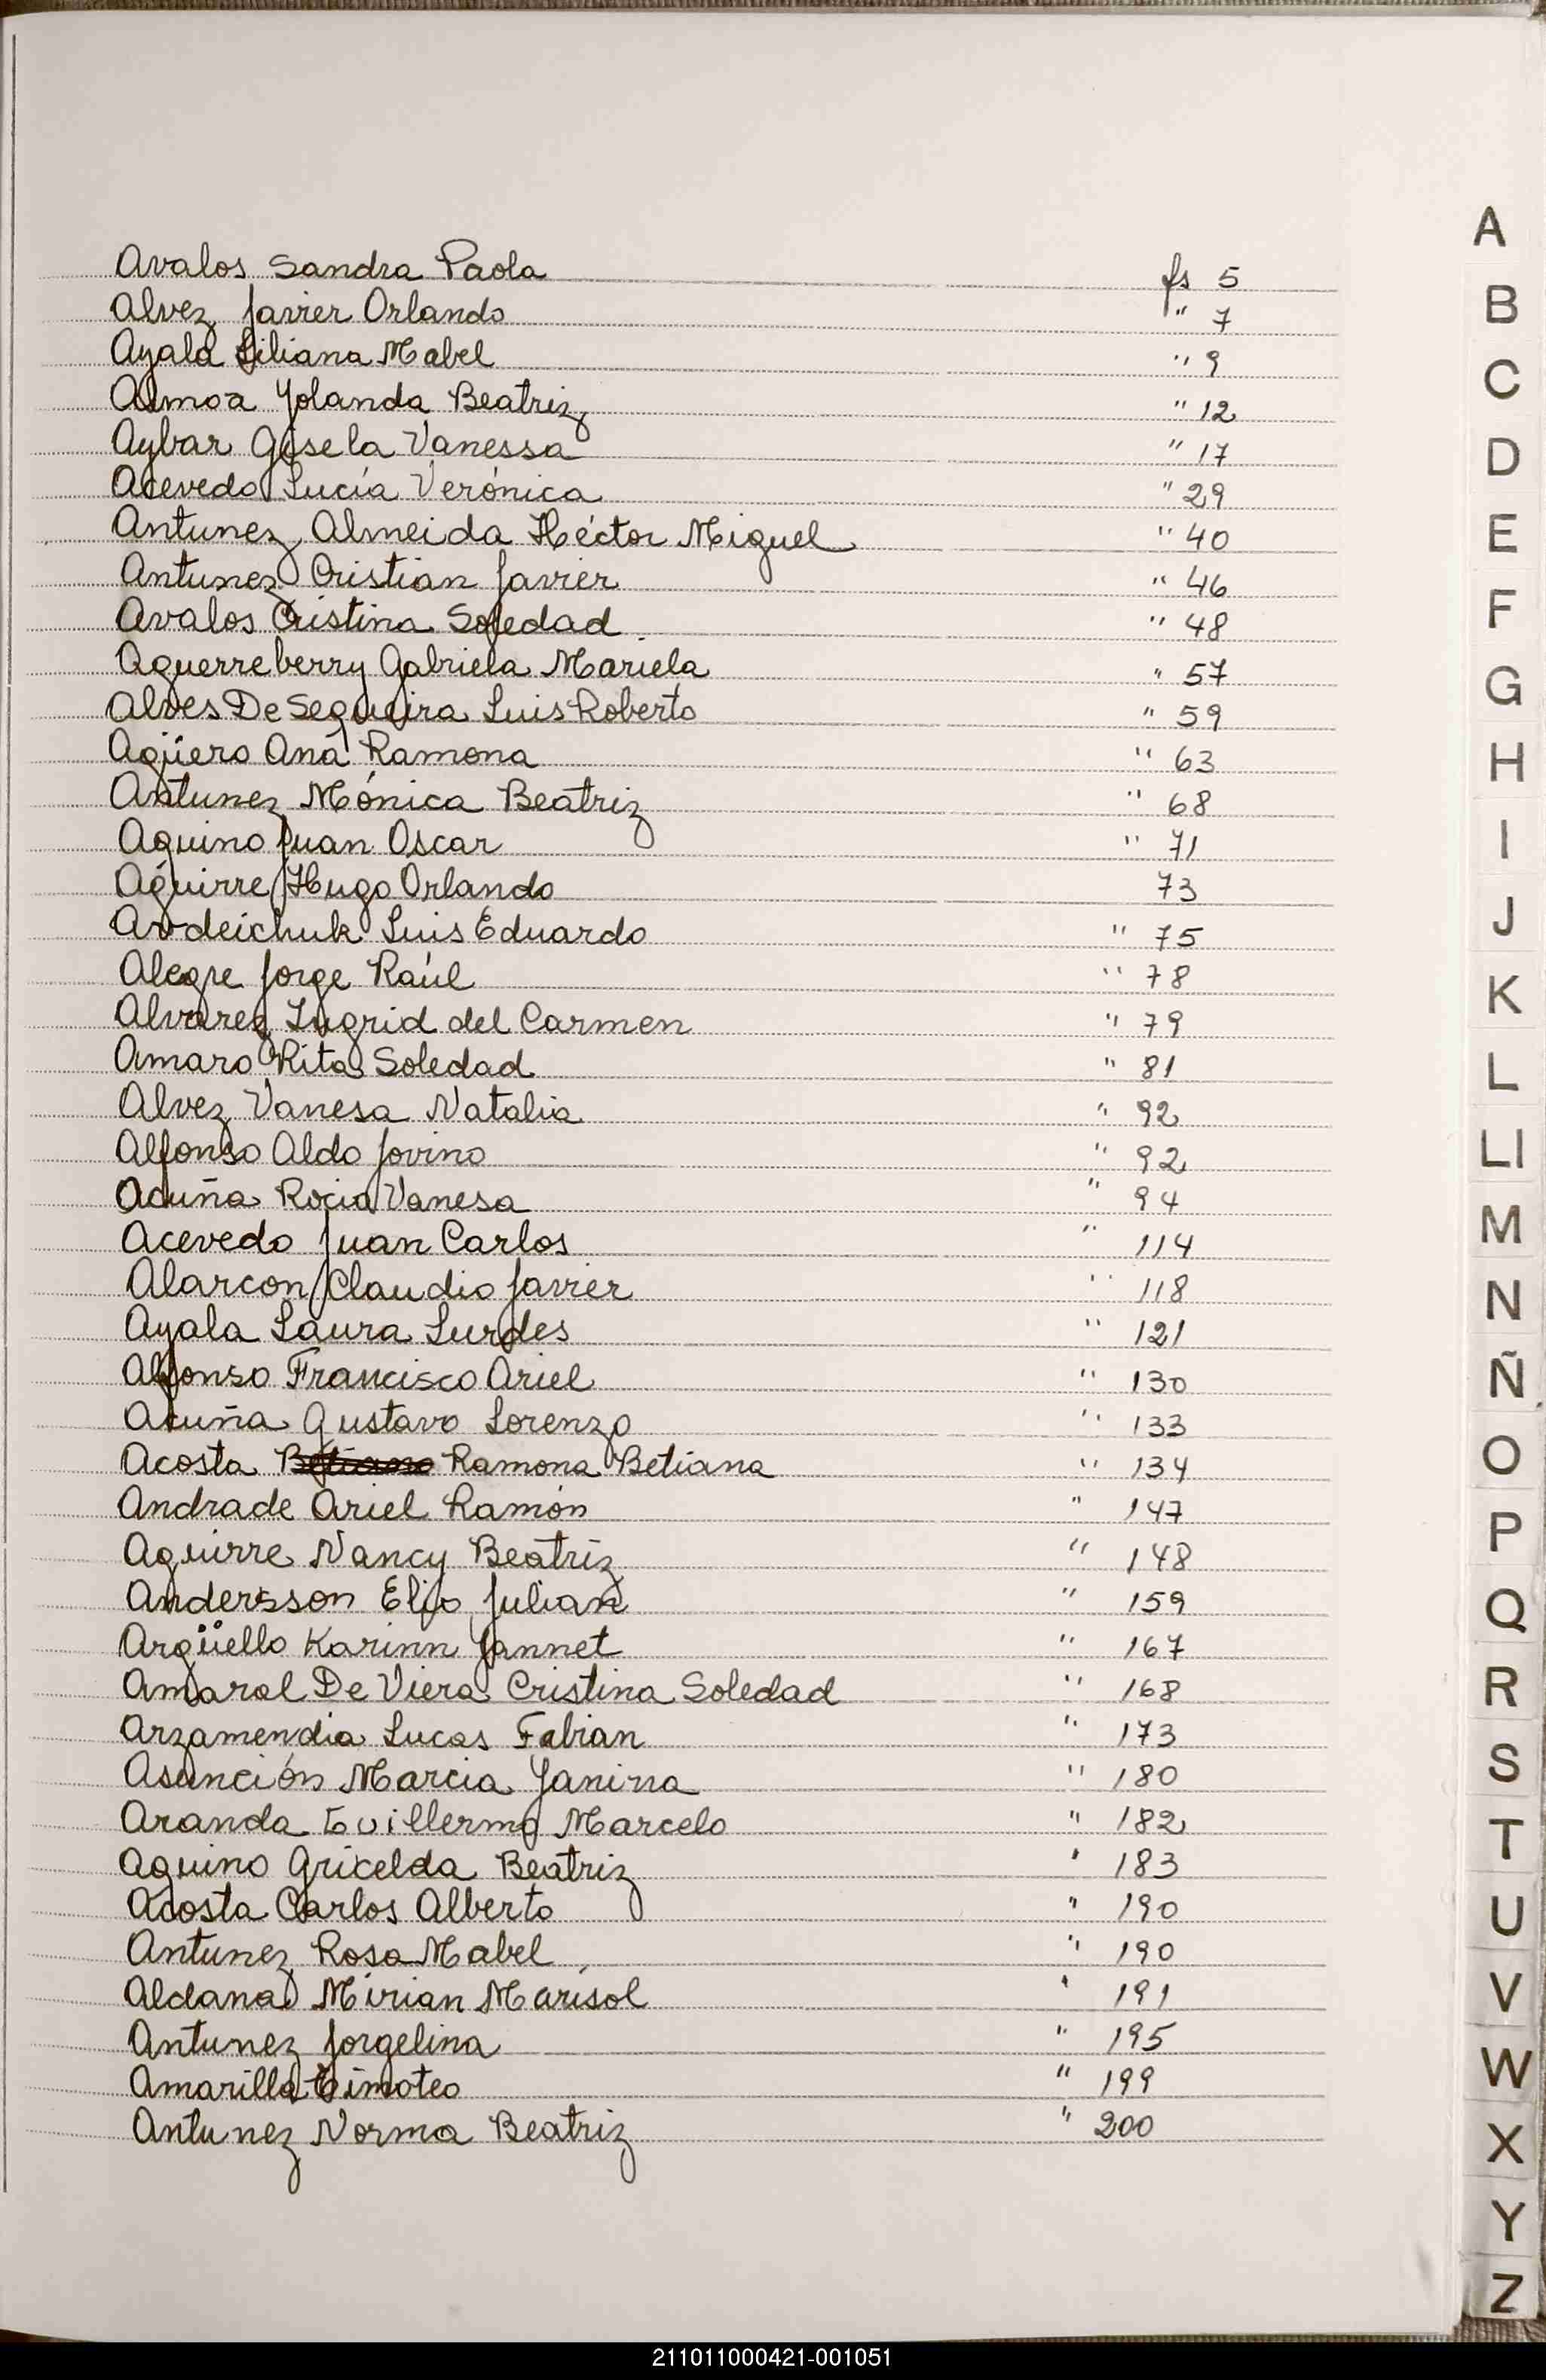 Avalos Sandra Paola fs 5
Alvez Javier Orlando " 7
Ayala Liliana Mabel " 9
Almoa Yolanda Beatriz " 12
Aybar Gisela Vanessa " 17
Acevedo Lucía Verónica " 29
Antunez Almeida Héctor Miguel " 40
Antunez Cristian Javier " 46
Avalos Cristina Soledad " 48
Aguerreberry Gabriela Mariela " 57
Alves De Sequeira Luis Roberto " 59
Agüero Ana Ramona " 63
Antunez Mónica Beatriz " 68
Aquino Juan Oscar " 71
Aguirre Hugo Orlando 73
Avdeichuk Luis Eduardo " 75
Alegre Jorge Raúl " 78
Alvarez Ingrid del Carmen " 79
Amaro Rita Soledad " 81
Alvez Vanesa Natalia " 92
Alfonso Aldo Jovino " 92
Acuña Rocia Vanesa " 94
Acevedo Juan Carlos " 114
Alarcon Claudio Javier " 118
Ayala Laura Lurdes " 121
Alfonso Francisco Ariel " 130
Acuña Gustavo Lorenzo " 133
Acosta Ramona Betiana " 134
Andrade Ariel Ramón " 147
Aguirre Nancy Beatriz " 148
Andersson Elio Julian " 159
Argüello Karinn Jannet " 167
Amaral De Viera Cristina Soledad " 168
Arzamendia Lucas Fabian " 173
Asunción Marcia Yanina " 180
Aranda Guillermo Marcelo " 182
Aquino Gricelda Beatriz ' 183
Acosta Carlos Alberto " 190
Antunez Rosa Mabel " 190
Aldana Mirian Marisol ' 191
Antunez Jorgelina " 195
Amarilla Timoteo " 199
Antunez Norma Beatriz " 200
A
B
C
D
E
F
G
H
I
J
K
L
Ll
M
N
Ñ
O
P
Q
R
S
T
U
V
W
X
Y
Z
211011000421-001051